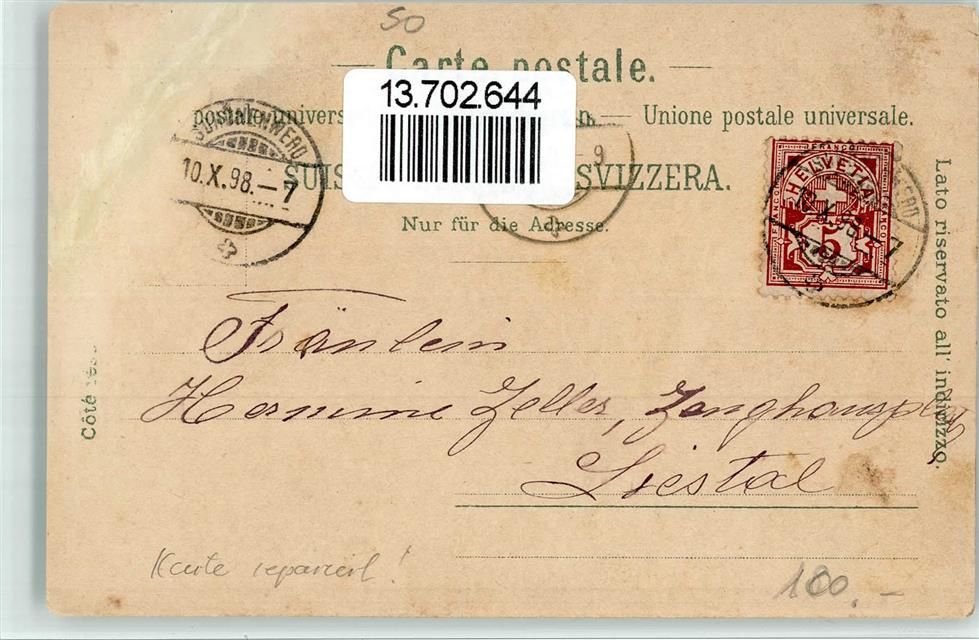 50
Carte postale.
13.702.644
postale univers n. — Unione postale universale.
SCHÖNENWERD
10.X.98.–7
SUIS SVIZZERA.
9
Nur für die Adresse.
FRANCO
HELVETIA
FRANCO
FRANCO
5
X.98.–7
Lato riservato all' indirizzo.
Côté rés
Fräulein
Hermine Zeller,
Liestal
Karte repariert!
100.–